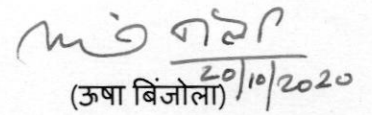 20/10/2020
(ऊषा बिंजोला)